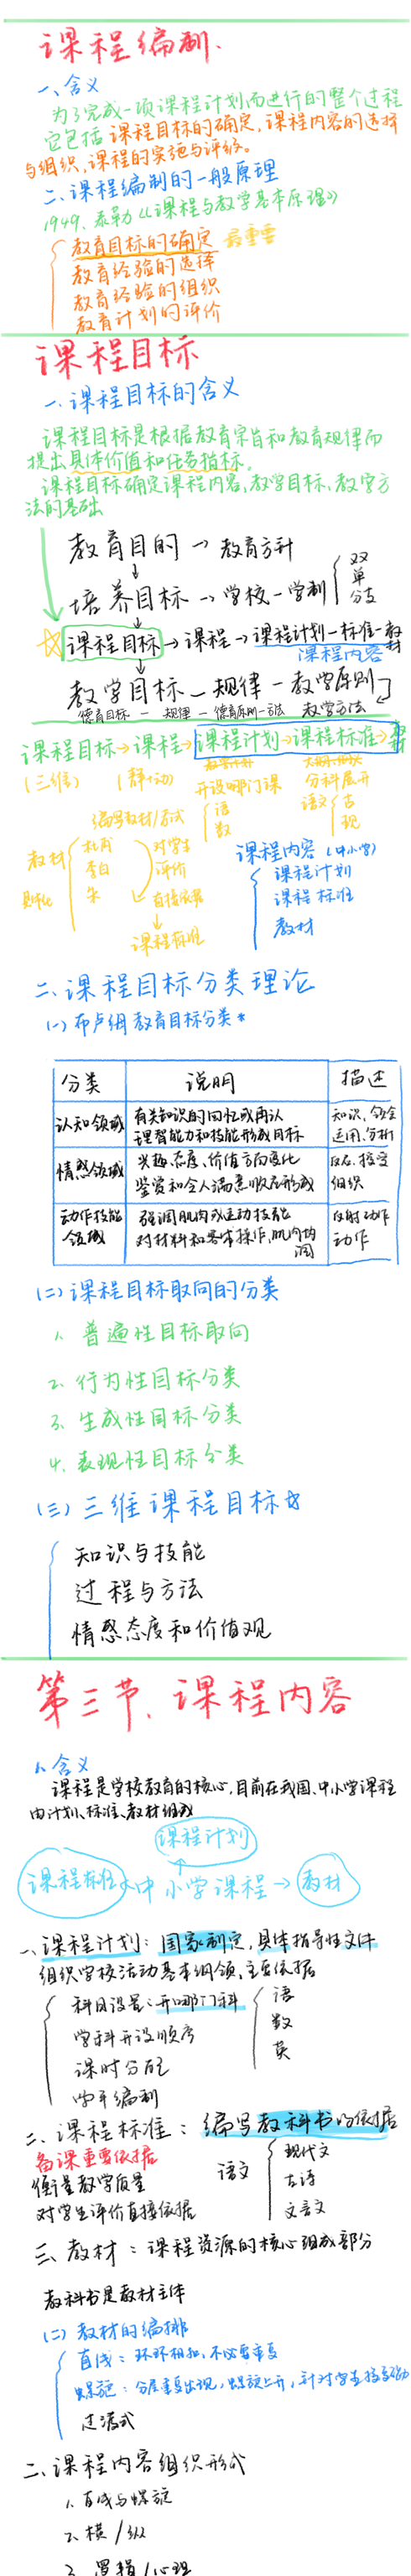 课程编制.
一、含义
为了完成一项课程计划而进行的整个过程
它包括课程目标的确定,课程内容的选择
与组织,课程的实施与评价。
二、课程编制的一般原理
1949.泰勒《课程与教学基本原理》
教育目标的确定 最重要
教育经验的选择
教育经验的组织
教育计划的评价
课程目标
一、课程目标的含义
课程目标是根据教育宗旨和教育规律而
提出具体价值和任务指标。
课程目标确定课程内容,教学目标、教学方
法的基础
教育目的→教育方针
培养目标→学校—学制
双
单
分支
课程目标→课程→课程计划—标准—教材
课程内容
教学目标—规律—教学原则
德育目标—规律—德育原则—方法 教学方法
课程目标→课程→课程计划→课程标准→教材
(三维)
开设哪门课 分科展开
语
数
语文
古
现
编写教材/考试
教材
杜甫
李白
朱
对学生
评价
直接依据
课程标准
课程内容(中小学)
课程计划
课程标准
教材
二、课程目标分类理论
(一)布卢姆教育目标分类*
分类 说明 描述
认知领域 有关知识的回忆或再认
理智能力和技能形成目标
知识、领会
运用、分析
情感领域 兴趣、态度、价值方面变化
鉴赏和令人满意顺应形成
反应、接受
组织
动作技能
领域
强调肌肉或运动技能
对材料和客体操作,肌肉协
调
反射动作
动作
(二)课程目标取向的分类
1. 普遍性目标取向
2. 行为性目标分类
3. 生成性目标分类
4. 表现性目标分类
(三)三维课程目标☆
知识与技能
过程与方法
情感态度和价值观
第三节、课程内容
1. 含义
课程是学校教育的核心,目前在我国、中小学课程
由计划、标准、教材组成
课程计划
课程标准←中小学课程→教材
一、课程计划:国家制定,具体指导性文件
组织学校活动基本纲领、主要依据
科目设置:开哪门科
学科开设顺序
课时分配
学年编制
语
数
英
二、课程标准:编写教科书的依据
备课重要依据
衡量教学质量
对学生评价直接依据
语文
现代文
古诗
文言文
三、教材:课程资源的核心组成部分
教科书是教材主体
(二)教材的编排
直线:环环相扣,不必要重复
螺旋:分层重复出现,螺旋上升,针对学生接受能力
过渡式
二、课程内容组织形式
1. 直线与螺旋
2. 横/纵
3. 逻辑/心理